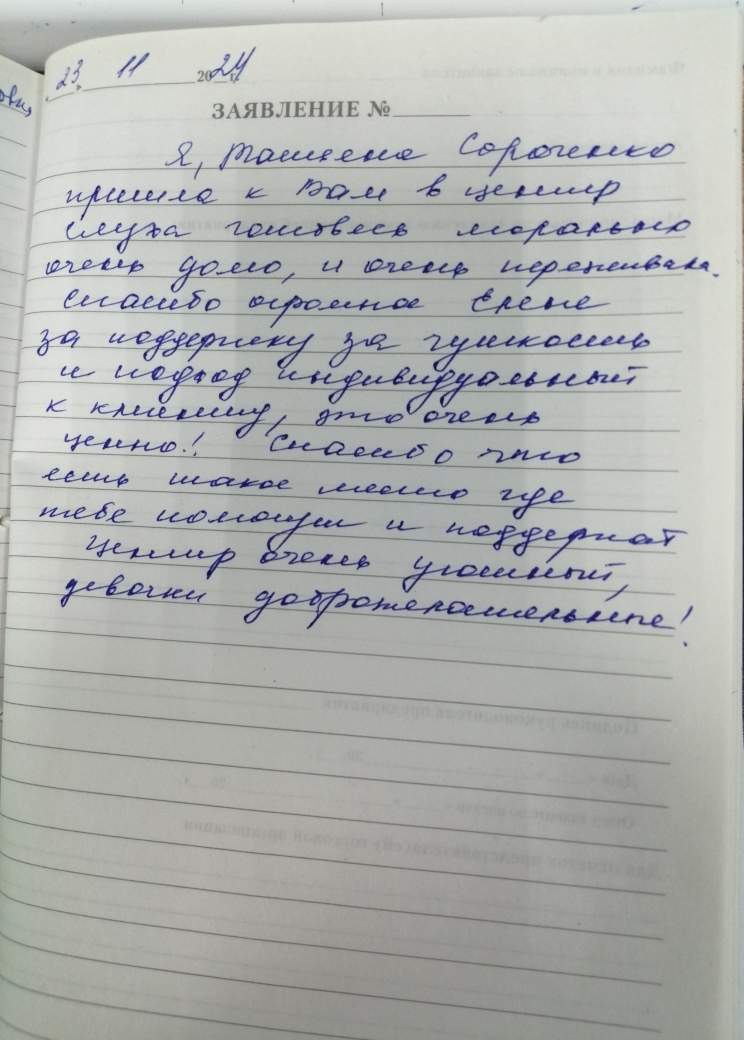 23 11 2024 г.
ЗАЯВЛЕНИЕ №
Я, Сороченко
пришла к Вам в центр
слуха готовясь морально
очень домо, и очень переживала.
Спасибо огромное Елене
за поддержку за чуткость
и подход индивидуальный
к клиенту, это очень
ценно! Спасибо что
есть такое место где
тебе помогут и поддержат
Центр очень уютный,
девочки доброжелательные!